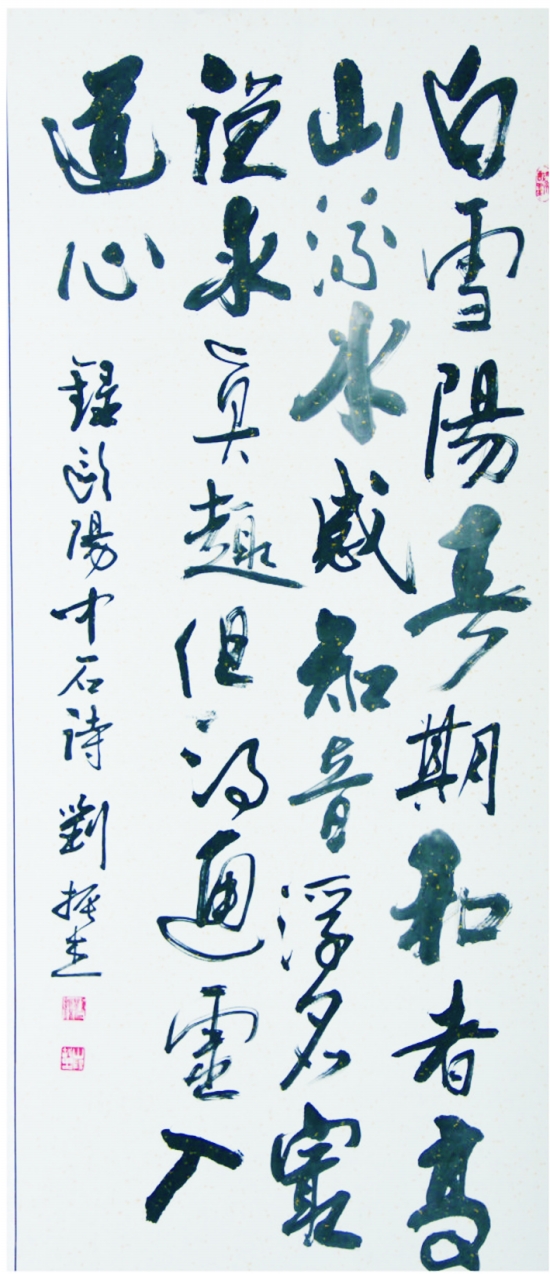 白雪陽春期和者高
山流水感知音浮名最
求真趣但得通靈入
道心 錄歐陽中石詩 劉振